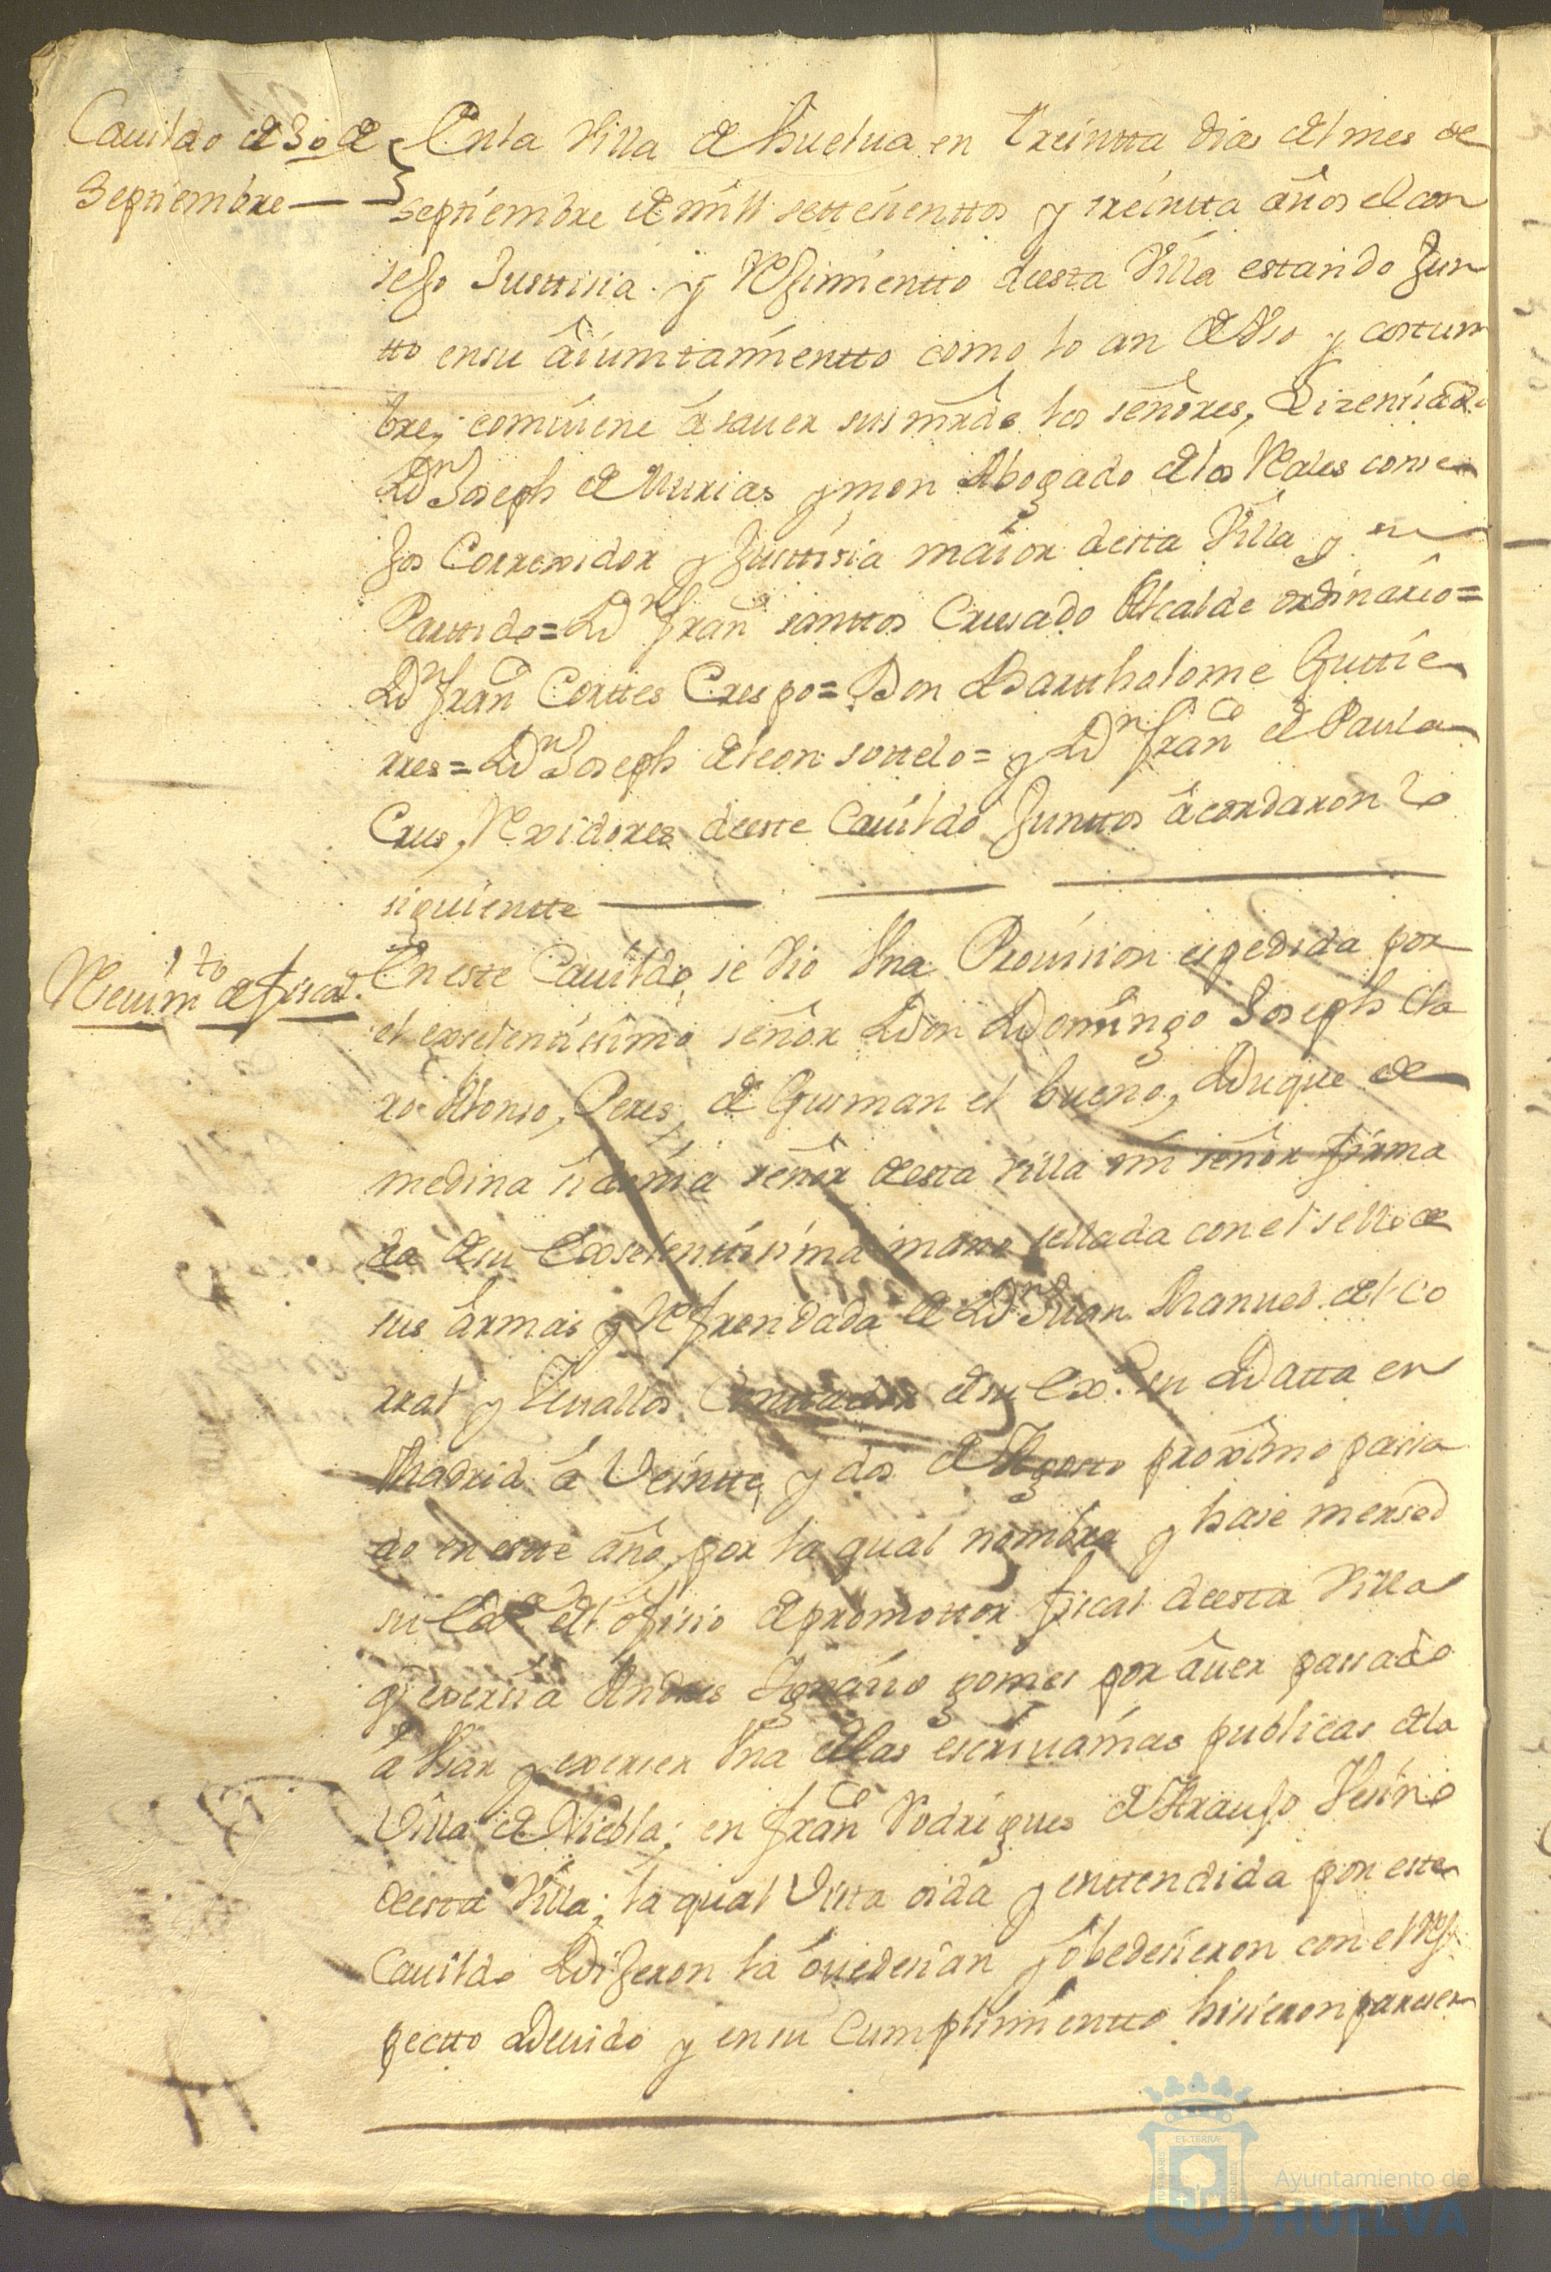 Cauildo de 30 de
Septiembre
En la Villa de huelua en treintta dias del mes de
septiembre de mill settesienttos y treintta años el con
sejo Justtisia y Rejimientto deesta Villa estando Jun
tto en su aiuntamientto como lo an de Vso y costum
bre, comuiene á sauer sus mrds los señores, Lizenciado
Dn Joseph de Murias ymon Abogado de los Rales conse
Jos Correxidor y Justtisia maior desta Villa y su
Parttido = Dn franco santtos Crusado Alcalde ordinario =
Dn franco Corttes Crespo = Don Bartholome Guttie
rres = Dn Joseph de leon sottelo = y Dn franco de Paula
Crus, Rexidores deeste Cauildo Junttos acordaron lo
siguientte
Reciuimto de fiscal.
En este Cauildo, se vio Vna Prouision espedida por
el exselentissimo señor Don Domingo Joseph Cla
ro Alonso, Peres, de Gusman el bueno, Duque de
medina sidonia señor deesta villa mi señor firma
da de su Exselentissima mano sellada con el sello de
sus armas y Refrendada de Dn Juan Manuel del co
rral y Seuallos Conttador de su Exa. su Datta en
Madrid á Veintte y dos de Agosto proximo passa
do en estte año, por la qual nombra y hase mersed
su Exa. del ofisio de promottor fiscal deesta Villa
q exersia Andres Ygnacio gomes por auer passado
á Vsar y exerser Vna de las escriuanias publicas de la
Villa de Niebla; en franco Rodrigues de Araujo Vesino
deesta Villa; la qual Vista oida y enttendida por este
Cauildo Dijeron la ouedesian y obedesieron con el Res
pectto Deuido y en su Cumplimientto hisieron pareser
Ayuntamiento de
HUELVA